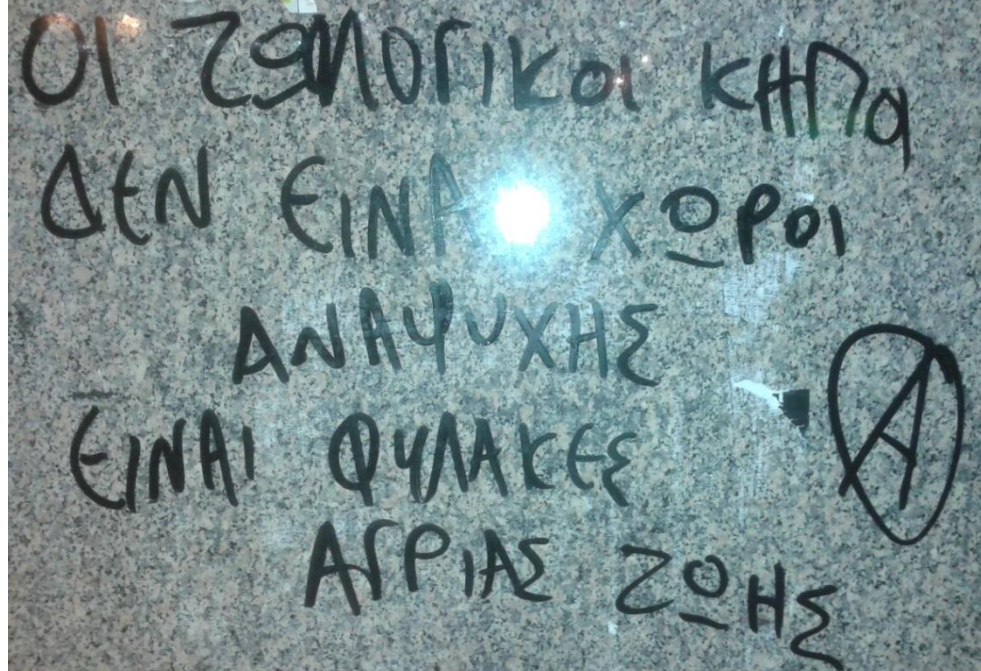 ΟΙ ΖΩΟΛΟΓΙΚΟΙ ΚΗΠΟΙ
ΔΕΝ ΕΙΝΑΙ ΧΩΡΟΙ
ΑΝΑΨΥΧΗΣ
ΕΙΝΑΙ ΦΥΛΑΚΕΣ
ΑΓΡΙΑΣ ΖΩΗΣ
Α